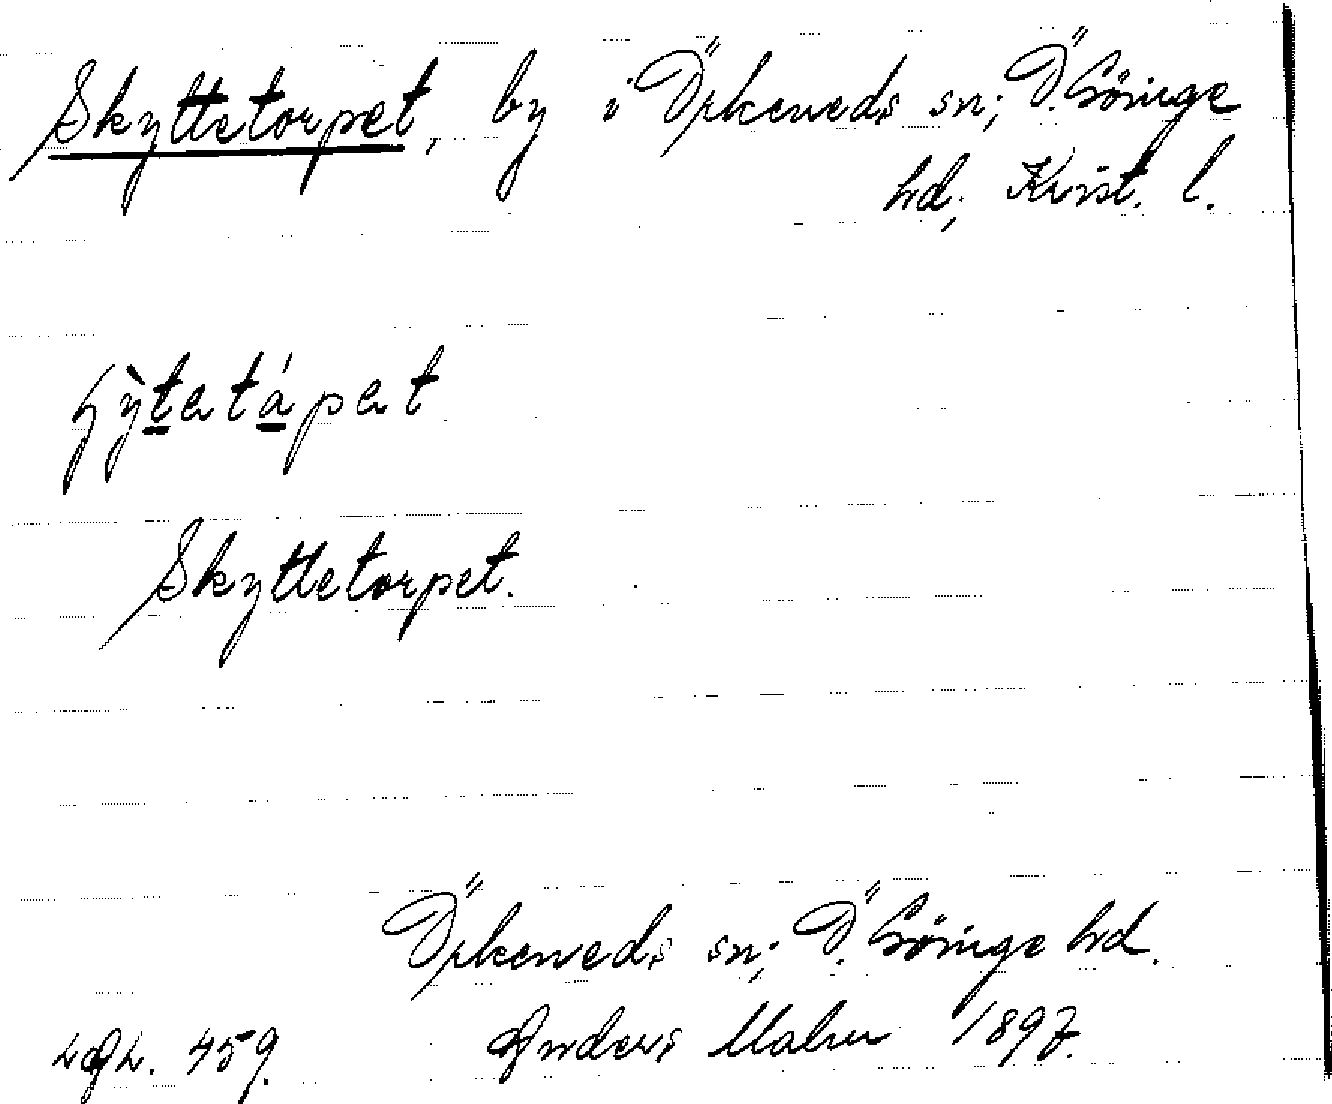 Skyttetorpet, by i Örkeneds sn; Ö. Göinge
hd; Krist. l.
Skyttetorpet.
Örkeneds sn; Ö. Göinge hd.
459. Anders Malm 1897.